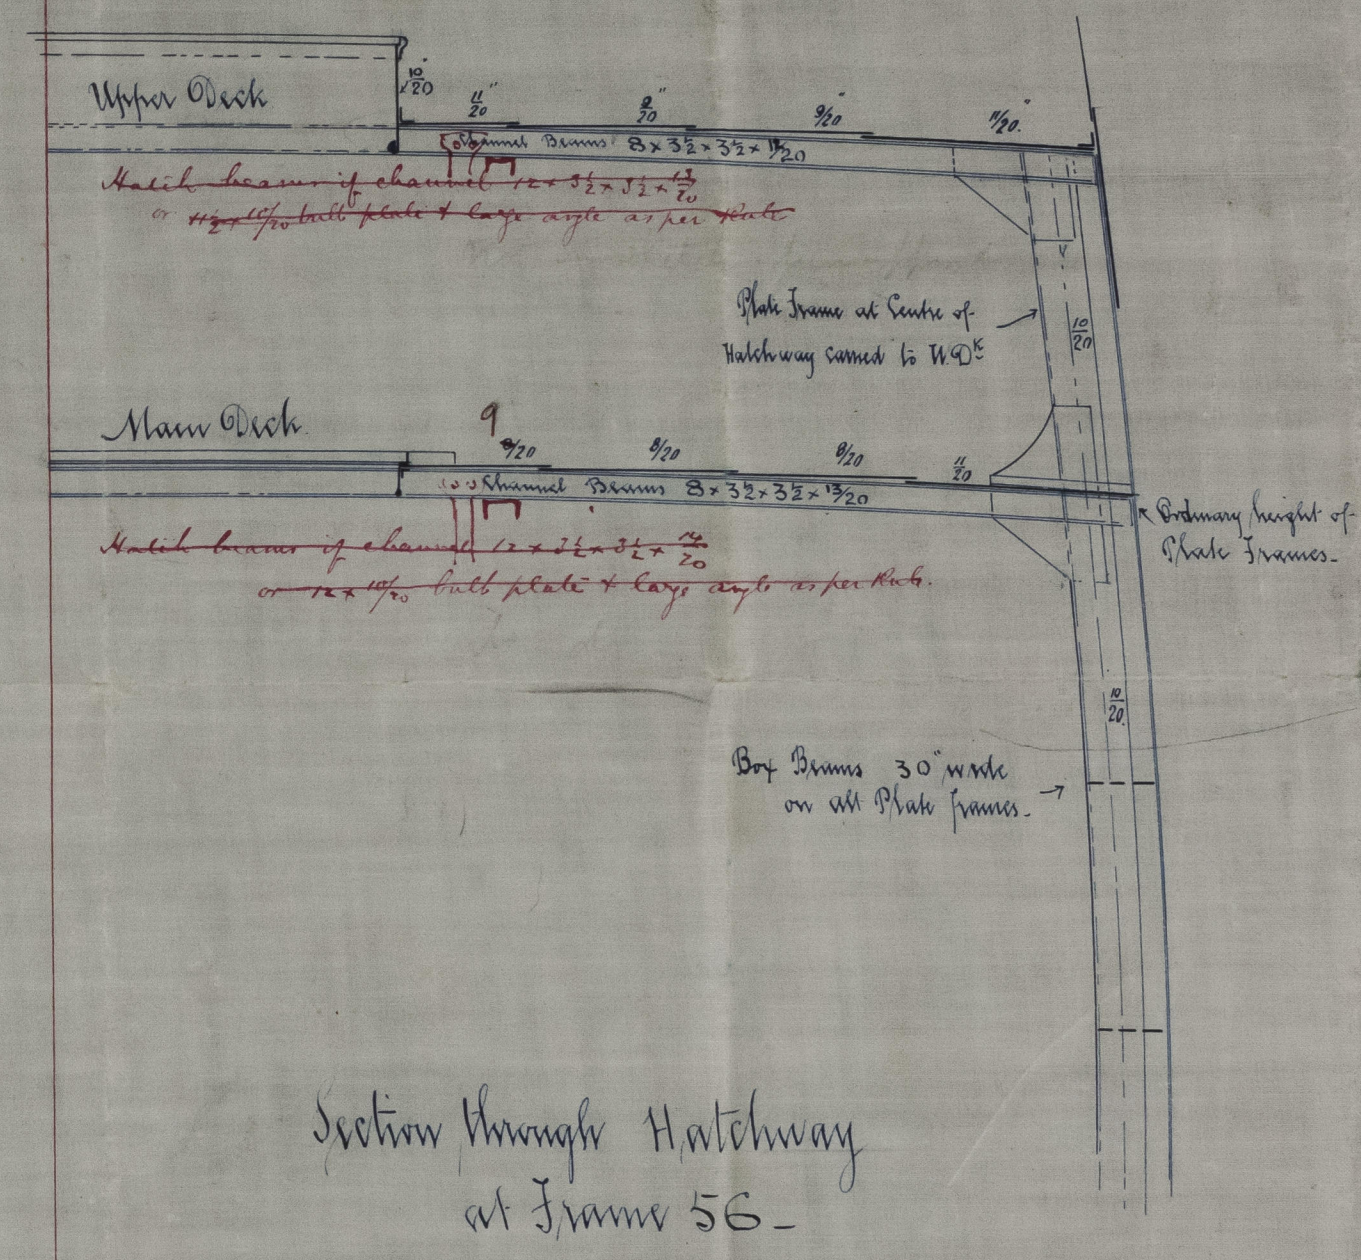 Upper Deck
10/20"
11/20"
9/20"
9/20"
11/20"
Channel Beams 8 x 3½ x 3½ x /20
Hatch beams if channel 12 x 3½ x 3½ x 13/20
or 11½ x 10/20 bulb plate & large angle as per Rule
Plate Frame at Centre of
Hatchway carried to U. Dk
10/20
Main Deck
9
8/20
8/20
8/20
11/20
Channel Beams 8 x 3½ x 3½ x 13/20
Ordinary height of
Plate Frames
Hatch beams if channel 12 x 3½ x 3½ x 14/20
or 12 x 10/20 bulb plate & large angle as per Rule.
10/20
Box Beams 30" wide
on alt Plate frames
Section through Hatchway
at Frame 56